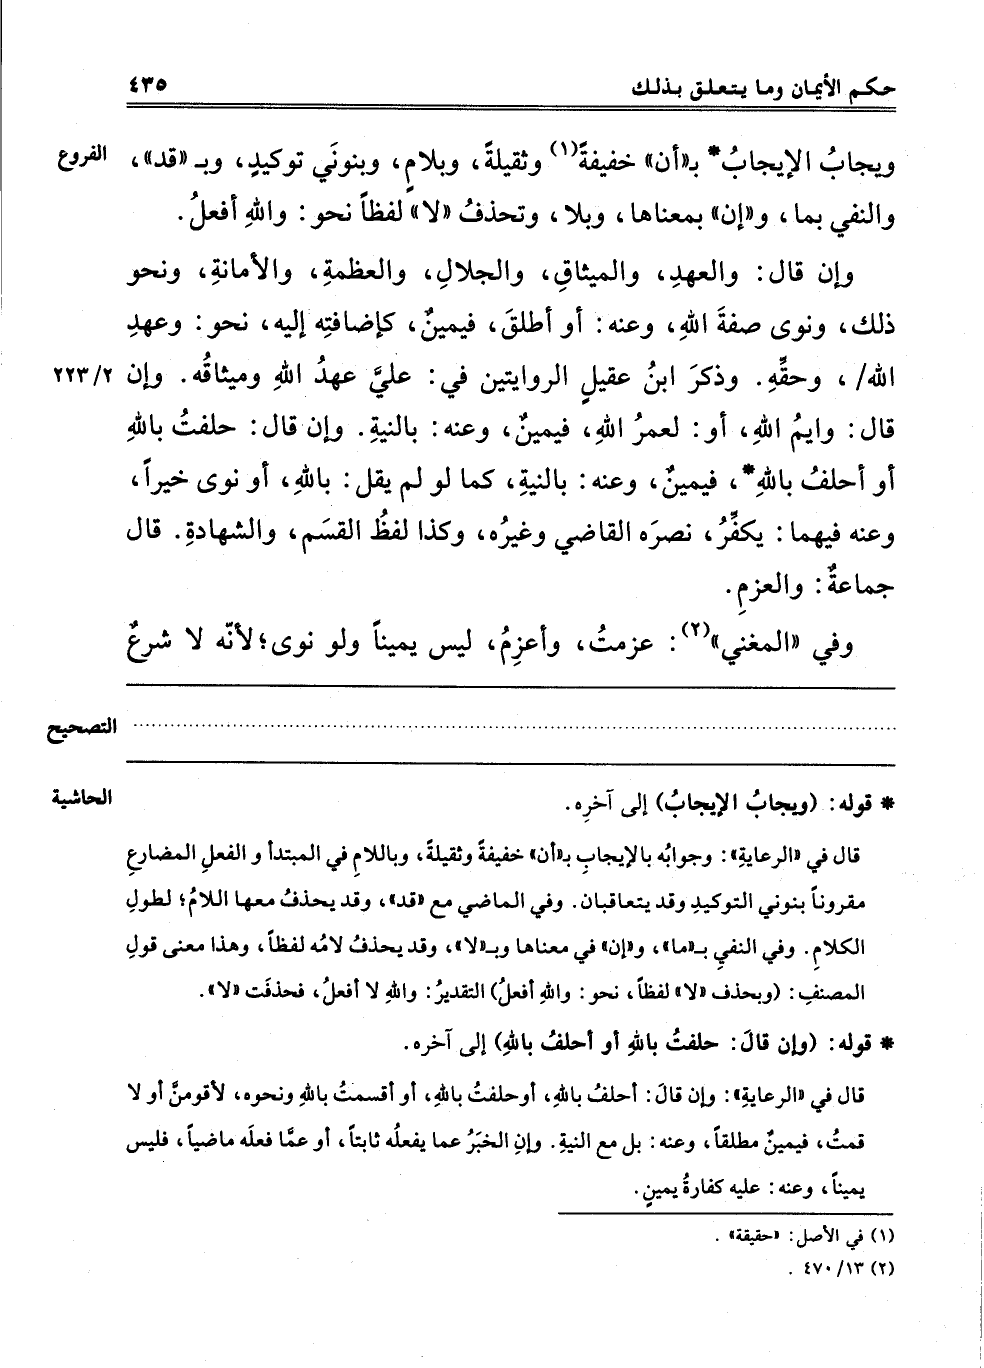 حكم الأيمان وما يتعلق بذلك ٤٣٥
الفروع
ويجابُ الإيجابُ* بـ«أن» خفيفةً(١) وثقيلةً، وبلامٍ، وبنونَي توكيدٍ، وبـ «قد»،
والنفي بما، و«إن» بمعناها، وبلا، وتحذفُ «لا» لفظاً نحو: واللهِ أفعلُ.
وإن قال: والعهدِ، والميثاقِ، والجلالِ، والعظمةِ، والأمانةِ، ونحو
ذلك، ونوى صفةَ اللهِ، وعنه: أو أطلقَ، فيمينٌ، كإضافتِه إليه، نحو: وعهدِ
الله/، وحقِّهِ. وذكرَ ابنُ عقيلٍ الروايتين في: عليَّ عهدُ اللهِ وميثاقُه. وإن ٢٢٣/٢
قال: وايمُ اللهِ، أو: لعمرُ اللهِ، فيمينٌ، وعنه: بالنيةِ. وإن قال: حلفتُ باللهِ
أو أحلفُ باللهِ*، فيمينٌ، وعنه: بالنيةِ، كما لو لم يقل: باللهِ، أو نوى خيراً،
وعنه فيهما: يكفِّرُ، نصرَه القاضي وغيرُه، وكذا لفظُ القسَم، والشهادةِ. قال
جماعةٌ: والعزمِ.
وفي «المغني»(٢): عزمتُ، وأعزِمُ، ليس يميناً ولو نوى؛ لأنّه لا شرعٌ
التصحيح
الحاشية
* قوله: (ويجابُ الإيجابُ) إلى آخرِه.
قال في «الرعايةِ»: وجوابُه بالإيجابِ بـ«أن» خفيفةً وثقيلةً، وباللامِ في المبتدأ و الفعلِ المضارعِ
مقروناً بنوني التوكيدِ وقد يتعاقبان. وفي الماضي مع «قد»، وقد يحذفُ معها اللامُ؛ لطولِ
الكلامِ. وفي النفيِ بـ«ما»، و«إن» في معناها وبـ«لا»، وقد يحذفُ لامُه لفظاً، وهذا معنى قولِ
المصنفِ: (وبحذف «لا» لفظاً، نحو: واللهِ أفعلُ) التقديرُ: واللهِ لا أفعلُ، فحذفَت «لا».
* قوله: (وإن قالَ: حلفتُ باللهِ أو أحلفُ باللهِ) إلى آخره.
قال في «الرعايةِ»: وإن قالَ: أحلفُ باللهِ، أوحلفتُ باللهِ، أو أقسمتُ باللهِ ونحوه، لأقومنَّ أو لا
قمتُ، فيمينٌ مطلقاً، وعنه: بل مع النيةِ. وإنِ الخبَرُ عما يفعلُه ثابتاً، أو عمَّا فعلَه ماضياً، فليس
يميناً، وعنه: عليه كفارةُ يمينٍ.
(١) في الأصل: «حقيقة».
(٢) ٤٧٠/١٣.